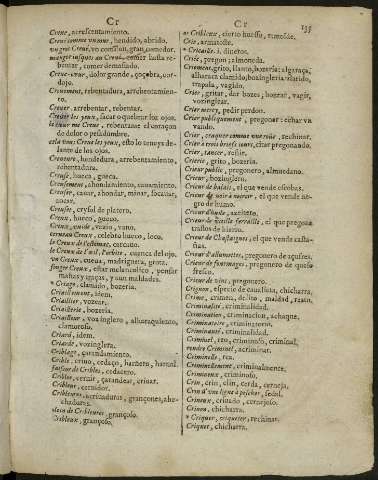 Cr
Creue, acrescentamiento.
Creué comme un tout, hendido, abrido.
vn gros Creué, vn comilon, gran comedor.
manger iusques au Creué, comer hasta re-
bentar, comer demasiado.
Creue-cœur, dolor grande, çoçobra, cor-
dojo.
Creuement, rebentadura, arrebentamien-
to.
Creuer, arrebentar, rebentar.
Creuer les yeux, sacar o quebrar los ojos.
le cœur me Creue, rebientame el coraçon
de dolor o pesadumbre.
cela vous Creue les yeux, esto lo teneys de-
lante de los ojos.
Creueure, hendedura, arrebentamiento,
rebentadura.
Creuse, hueca, gueca.
Creusement, ahondamiento,
Creuser, cauar, ahondar, minar, socauar,
Creuset, crysol de platero.
Creux, hueco, gueco.
Creux, vuide, vazio, vano.
cerueau Creux, celebro hueco, loco.
le Creux de l'estomac,
le Creux de l'œil, cuenca del ojo.
vn Creux, cueua, madriguera, grota.
songer Creux, estar melancolico, pensar
malos y traças, y aun maldades.
* Criage, clamado, bozeria.
Criaillement, idem.
Criailler, vozear.
Criaillerie, bozeria.
Criailleur, vozinglero,
clamoroso.
Criard, idem.
Criarde, vozinglera.
Criblage, çarandamiento.
Crible, criuo, cedaço, harnero,
faiseur de Cribles, cedacero.
Cribler, cernir, çarandear, criuar.
Cribleur, cernidor.
Cribleures, acriuaduras, grançones, ahe-
chaduras.
plein de Cribleures, grançoso.
Cribleux, grançoso.
Cr
135
os Cribleux, cierto huesso,
Cric,
* Cricaille. i. dinero.
Criée, pregon; almoneda.
Criement, grito, llanto, bozeria; algaraça;
alharaca clamido, bozingleria; alarido,
trapala, vagido.
Crier, gritar, dar bozes; bozear, vagir,
vozinglear.
Crier mercy, pedir perdon.
Crier publiquement, pregonar: echar va
vando.
Crier, craquer comme vne roüe, rechinar.
Crier à trois briefs iours, citar pregonando.
Crier, tancer, reñir.
Crierie, grito, bozeria.
Crieur public, pregonero, almoedano.
Crieur, bozinglero.
Crieur de balais, el que vende escobas.
Crieur de noir à noircir, el que vende ne-
gro de humo.
Crieur d'huile, azeitero.
Crieur de vieille ferraille, el que pregona
trastos de hierro.
Crieur de Chastagnes, el que vende casta-
ñas.
Crieur d'allumettes, pregonero de açufres.
Crieur de fourmages, pregonero de queso
fresco.
Crieur de vins, pregonero.
Crignon, especie de chicharra.
Crime, crimen, delito, maldad,
Criminaliser,
Crimination, criminacion, achaque.
Criminatoire, criminatorio.
Criminauté, criminalidad.
Criminel, reo, criminoso, criminal.
rendre Criminel, acriminar.
Criminelle, rea.
Criminellement, criminalmente.
Crimineux, criminoso.
Crin, crin, clin, cerda, cerneja.
Crin d'vne ligne à pescher, sedal.
Crineux, crinado, cernejoso.
Crinon, chicharra.
* Criquer, criqueter, rechinar.
Criquet, chicharra.